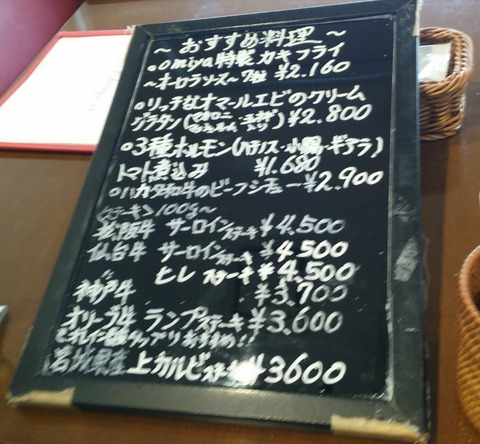 ～おすすめ料理～
●omiya特製カキフライ
～オーロラソース～ 7粒 ¥2.160
●リッチなオマールエビのクリーム
グラタン(マカロニ 玉ネギ 入り) ¥2.800
●3種ホルモン(ハチノス・小腸・ギアラ)
トマト煮込み ¥1.680
●ハカタ和牛のビーフシチュー ¥2.900
<ステーキ>100g～
松阪牛 サーロインステーキ ¥4.500
仙台牛 サーロインステーキ ¥4.500
ヒレステーキ ¥4.500
神戸牛 ¥3.700
オリーブ牛 ランプステーキ ¥3.600
おすすめ!!
宮城県産 上カルビステーキ ¥3600